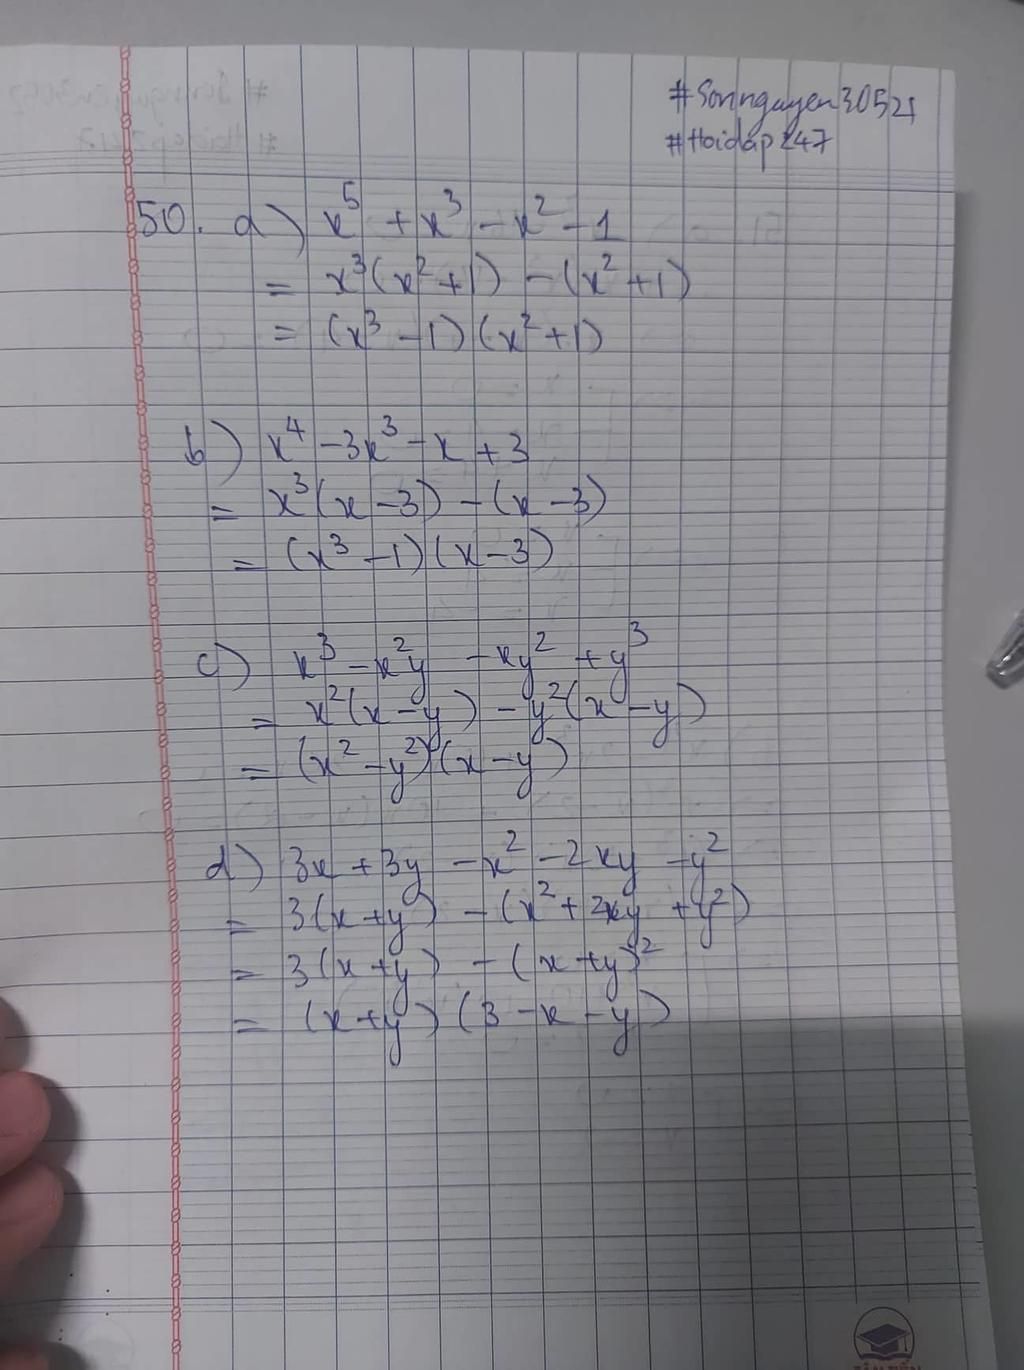 #Sonnguyen30521
#Hoidap247
50. a) x⁵ + x³ - x² - 1
= x³(x² + 1) - (x² + 1)
= (x³ - 1)(x² + 1)
b) x⁴ - 3x³ - x + 3
= x³(x - 3) - (x - 3)
= (x³ - 1)(x - 3)
c) x³ - x²y - xy² + y³
= x²(x - y) - y²(x - y)
= (x² - y²)(x - y)
d) 3x + 3y - x² - 2xy - y²
= 3(x + y) - (x² + 2xy + y²)
= 3(x + y) - (x + y)²
= (x + y)(3 - x - y)